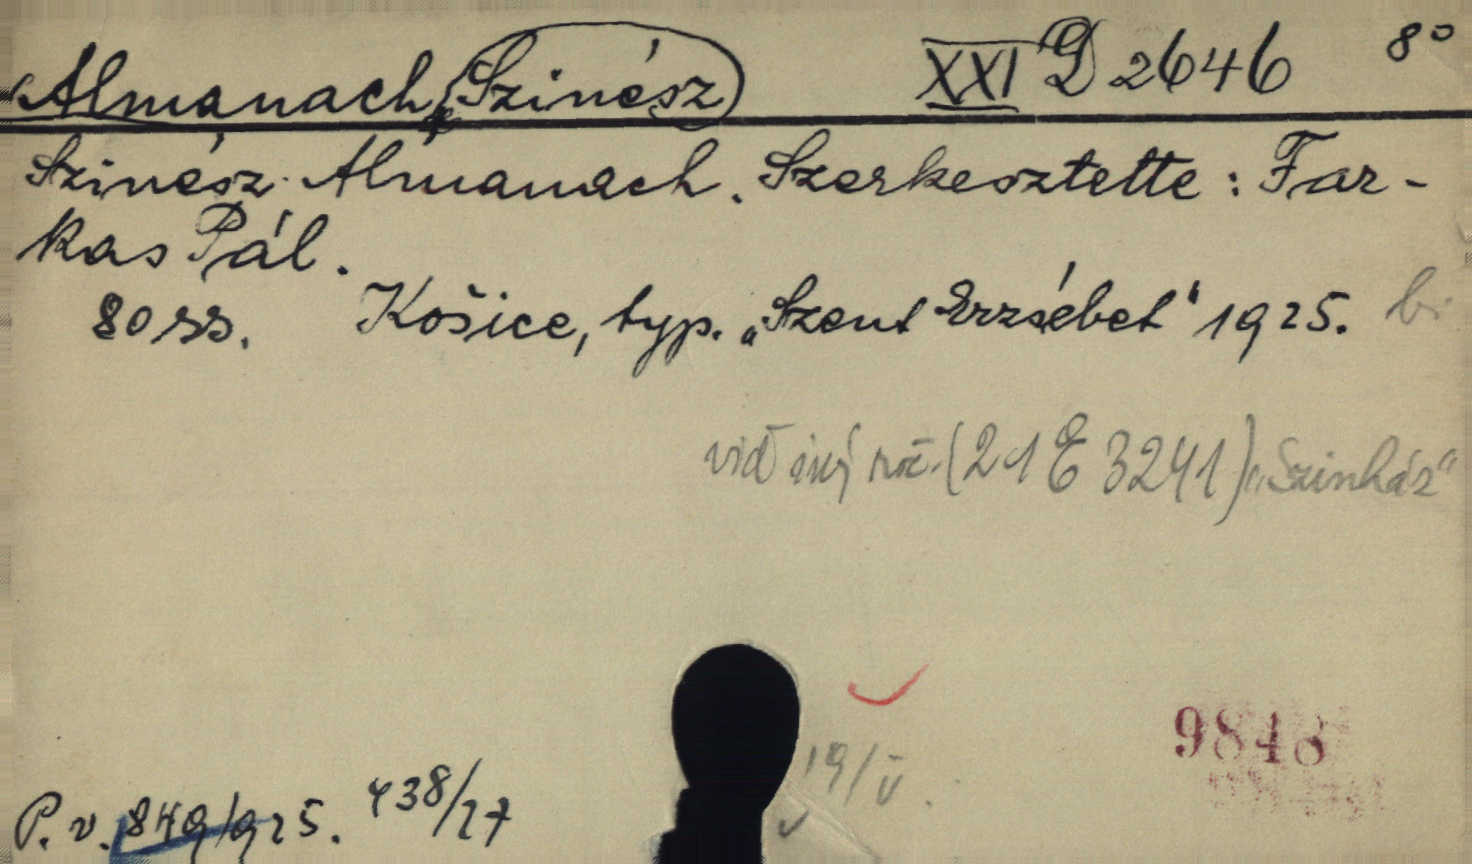 Almanach, Szinész XXI D 2646 8°
Szinész-Almanach. Szerkesztette: Far-
kas Pál.
80 ss. Košice, typ. „Szent Erzsébet“ 1925.
viď iný roč. (21 E 3241) „Szinház“
19/V.
9848
P. v. 849/925. 438/27